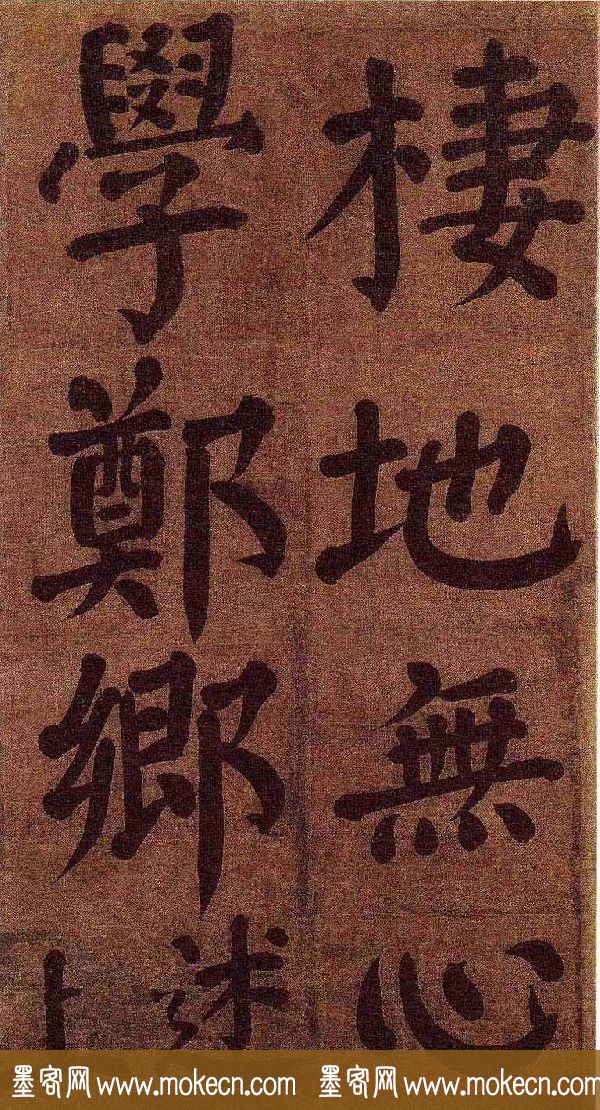 棲地無心
學鄭鄉
述
墨客网 www.mokecn.com 墨客网 www.mokecn.com